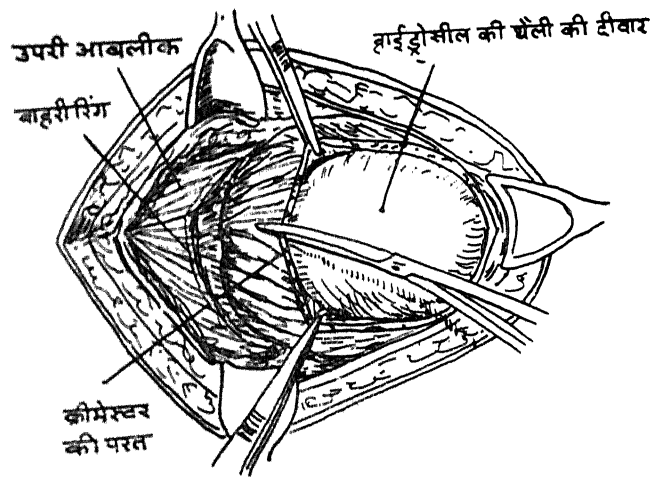 उपरी आबलीक
हाईड्रोसील की थैली की दीवार
बाहरी रिंग
क्रीमेस्टर
की परत